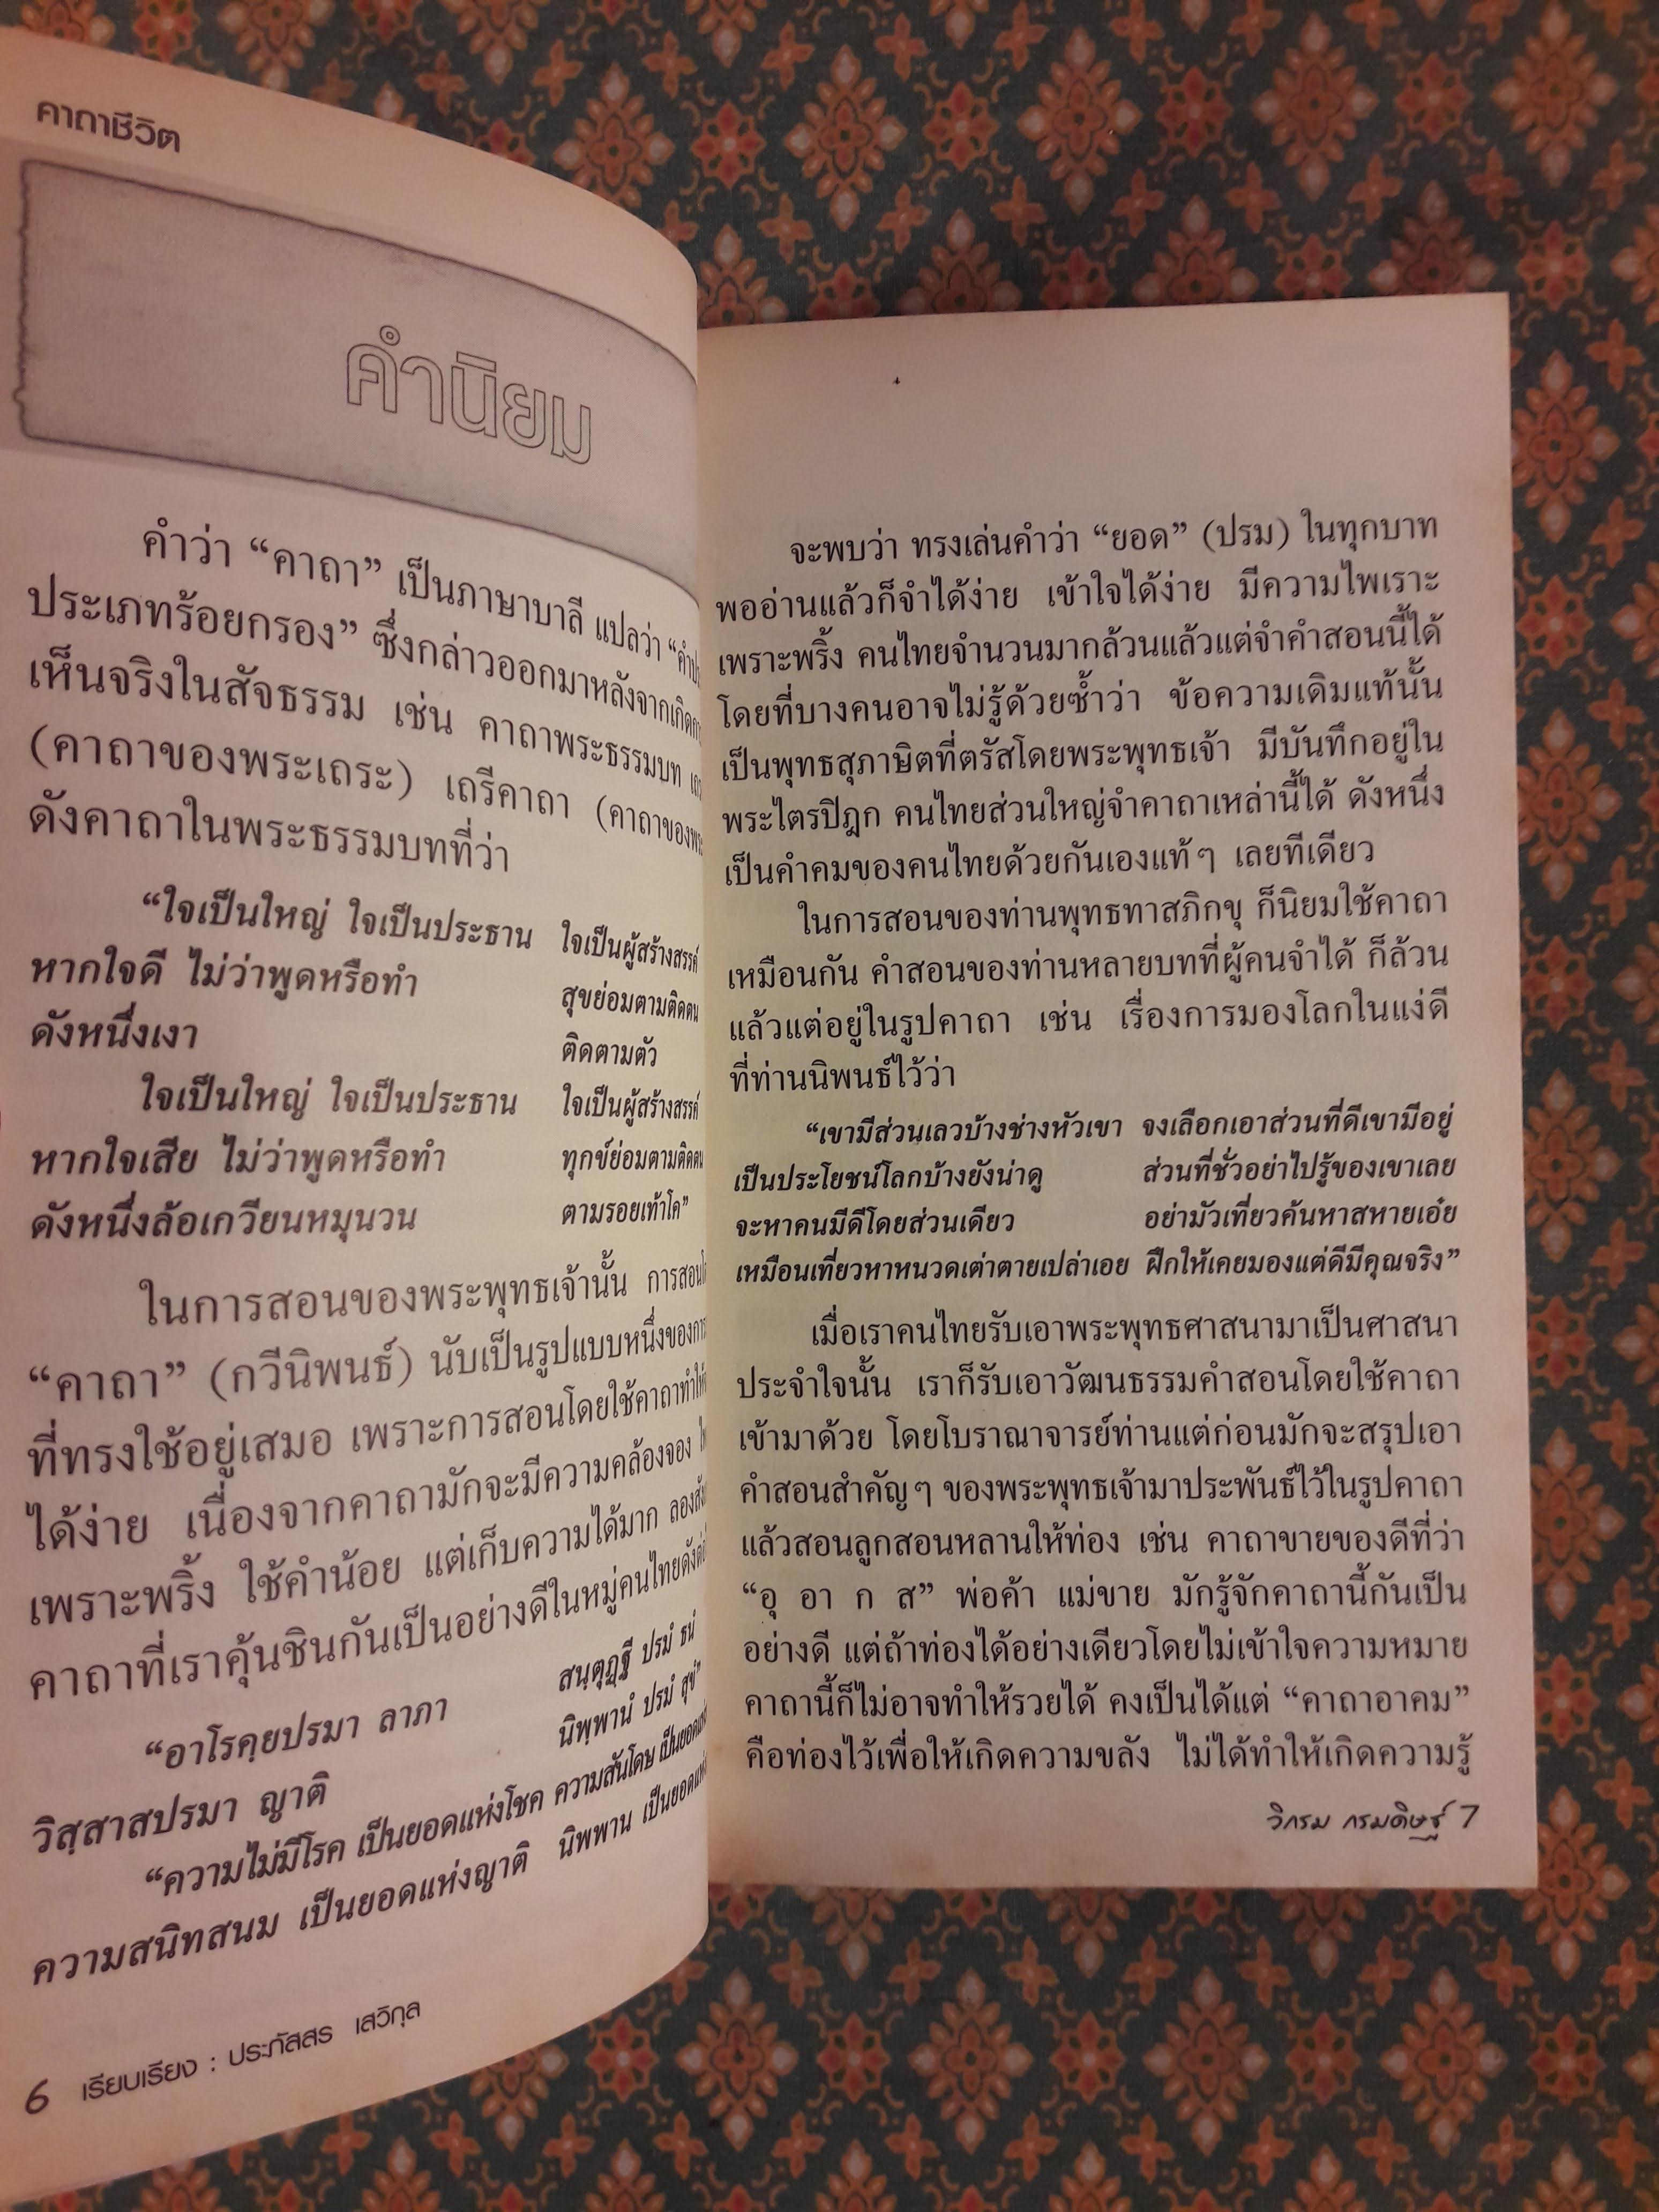 คาถาชีวิต
คำนิยม
คำว่า “คาถา” เป็นภาษาบาลี แปลว่า
ประเภทร้อยกรอง” ซึ่งกล่าวออกมาหลังจากเกิด
เห็นจริงในสัจธรรม เช่น คาถาพระธรรมบท
(คาถาของพระเถระ) เถรีคาถา (คาถาของ
ดังคาถาในพระธรรมบทที่ว่า
“ใจเป็นใหญ่ ใจเป็นประธาน ใจเป็นผู้สร้างสรรค์
หากใจดี ไม่ว่าพูดหรือทำ สุขย่อมตามติดตน
ดังหนึ่งเงา ติดตามตัว
ใจเป็นใหญ่ ใจเป็นประธาน ใจเป็นผู้สร้างสรรค์
หากใจเสีย ไม่ว่าพูดหรือทำ ทุกข์ย่อมตามติดตน
ดังหนึ่งล้อเกวียนหมุนวน ตามรอยเท้าโค”
ในการสอนของพระพุทธเจ้านั้น การสอน
“คาถา” (กวีนิพนธ์) นับเป็นรูปแบบหนึ่งของ
ที่ทรงใช้อยู่เสมอ เพราะการสอนโดยใช้คาถาทำให้
ได้ง่าย เนื่องจากคาถามักจะมีความคล้องจอง
เพราะพริ้ง ใช้คำน้อย แต่เก็บความได้มาก
คาถาที่เราคุ้นชินกันเป็นอย่างดีในหมู่คนไทย
“อาโรคฺยปรมา ลาภา สนฺตุฏฺฐี ปรมํ ธนํ
วิสฺสาสปรมา ญาติ นิพฺพานํ ปรมํ สุขํ”
“ความไม่มีโรค เป็นยอดแห่งโชค ความสันโดษ
ความสนิทสนม เป็นยอดแห่งญาติ นิพพาน
6 เรียบเรียง : ประภัสสร เสวิกุล
จะพบว่า ทรงเล่นคำว่า “ยอด” (ปรม) ในทุกบาท
พออ่านแล้วก็จำได้ง่าย เข้าใจได้ง่าย มีความไพเราะ
เพราะพริ้ง คนไทยจำนวนมากล้วนแล้วแต่จำคำสอนนี้ได้
โดยที่บางคนอาจไม่รู้ด้วยซ้ำว่า ข้อความเดิมแท้นั้น
เป็นพุทธสุภาษิตที่ตรัสโดยพระพุทธเจ้า มีบันทึกอยู่ใน
พระไตรปิฎก คนไทยส่วนใหญ่จำคาถาเหล่านี้ได้ ดังหนึ่ง
เป็นคำคมของคนไทยด้วยกันเองแท้ๆ เลยทีเดียว
ในการสอนของท่านพุทธทาสภิกขุ ก็นิยมใช้คาถา
เหมือนกัน คำสอนของท่านหลายบทที่ผู้คนจำได้ ก็ล้วน
แล้วแต่อยู่ในรูปคาถา เช่น เรื่องการมองโลกในแง่ดี
ที่ท่านนิพนธ์ไว้ว่า
“เขามีส่วนเลวบ้างช่างหัวเขา จงเลือกเอาส่วนที่ดีเขามีอยู่
เป็นประโยชน์โลกบ้างยังน่าดู ส่วนที่ชั่วอย่าไปรู้ของเขาเลย
จะหาคนมีดีโดยส่วนเดียว อย่ามัวเที่ยวค้นหาสหายเอ๋ย
เหมือนเที่ยวหาหนวดเต่าตายเปล่าเอย ฝึกให้เคยมองแต่ดีมีคุณจริง”
เมื่อเราคนไทยรับเอาพระพุทธศาสนามาเป็นศาสนา
ประจำใจนั้น เราก็รับเอาวัฒนธรรมคำสอนโดยใช้คาถา
เข้ามาด้วย โดยโบราณาจารย์ท่านแต่ก่อนมักจะสรุปเอา
คำสอนสำคัญๆ ของพระพุทธเจ้ามาประพันธ์ไว้ในรูปคาถา
แล้วสอนลูกสอนหลานให้ท่อง เช่น คาถาขายของดีที่ว่า
“อุ อา ก ส” พ่อค้า แม่ขาย มักรู้จักคาถานี้กันเป็น
อย่างดี แต่ถ้าท่องได้อย่างเดียวโดยไม่เข้าใจความหมาย
คาถานี้ก็ไม่อาจทำให้รวยได้ คงเป็นได้แต่ “คาถาอาคม”
คือท่องไว้เพื่อให้เกิดความขลัง ไม่ได้ทำให้เกิดความรู้
วิกรม กรมดิษฐ์ 7